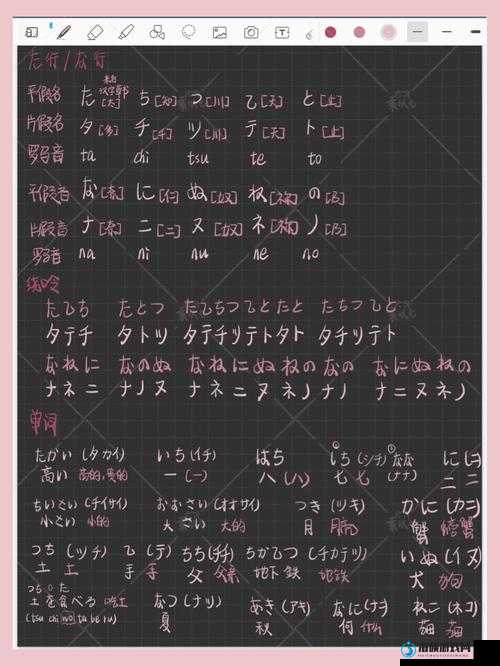 た行/な行
平假名 た 来自汉字草书[太] ち[知] つ[川] て[天] と[止]
片假名 タ[多] チ[千] ツ[川] テ[天] ト[止]
罗马音 ta chi tsu te to
平假名 な[奈] に[仁] ぬ[奴] ね[祢] の[乃]
片假名 ナ[奈] ニ[二] ヌ[奴] ネ[祢] ノ[乃]
罗马音 na ni nu ne no
绕口令
たてち たとつ たてちつてとたと たちつてと
タテチ タトツ タテチツテトタト タチツテト
なねに なのぬ なねにぬねのなの なにぬねの
ナネニ ナノヌ ナネニヌネノナノ ナニヌネノ
单词
たかい(タカイ) いち(イチ) はち ①しち(シチ) ②なな に(ニ)
高い 高的,贵的 一(一) 八(八) 七 七(ナナ) 二 二
ちいさい(チイサイ) おおさい(オオサイ) つき(ツキ) かに(カニ)
小さい 小的 大さい 大的 月 月亮 蟹 螃蟹
つち(ツチ) て(テ) ちち(チチ) ちかてつ(チカテツ) いぬ(イヌ)
土 土 手 手 父 父亲 地下鉄 地铁 犬 狗
土を食べる 吃土 なつ(ナツ) あき(アキ) なに(ナニ) ねこ(ネコ)
(tsu chi wo ta be ru) 夏 秋 何 什么 猫 猫